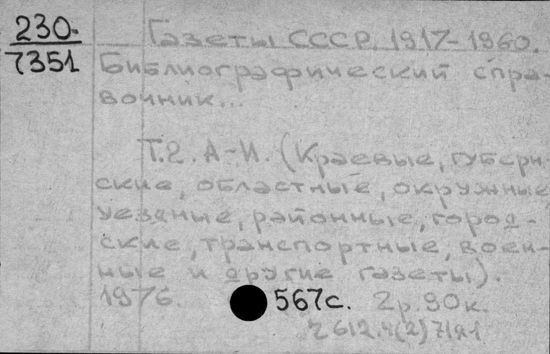 230-
7351
Газеты СССР. 1917-1960.
Библиографический спра-
вочник...
Т.2. А-И. (Краевые, губерн-
ские, областные, окружные,
уездные, районные, город-
ские, транспортные, воен-
ные и другие газеты).
1976. 567с. 2р.90к.